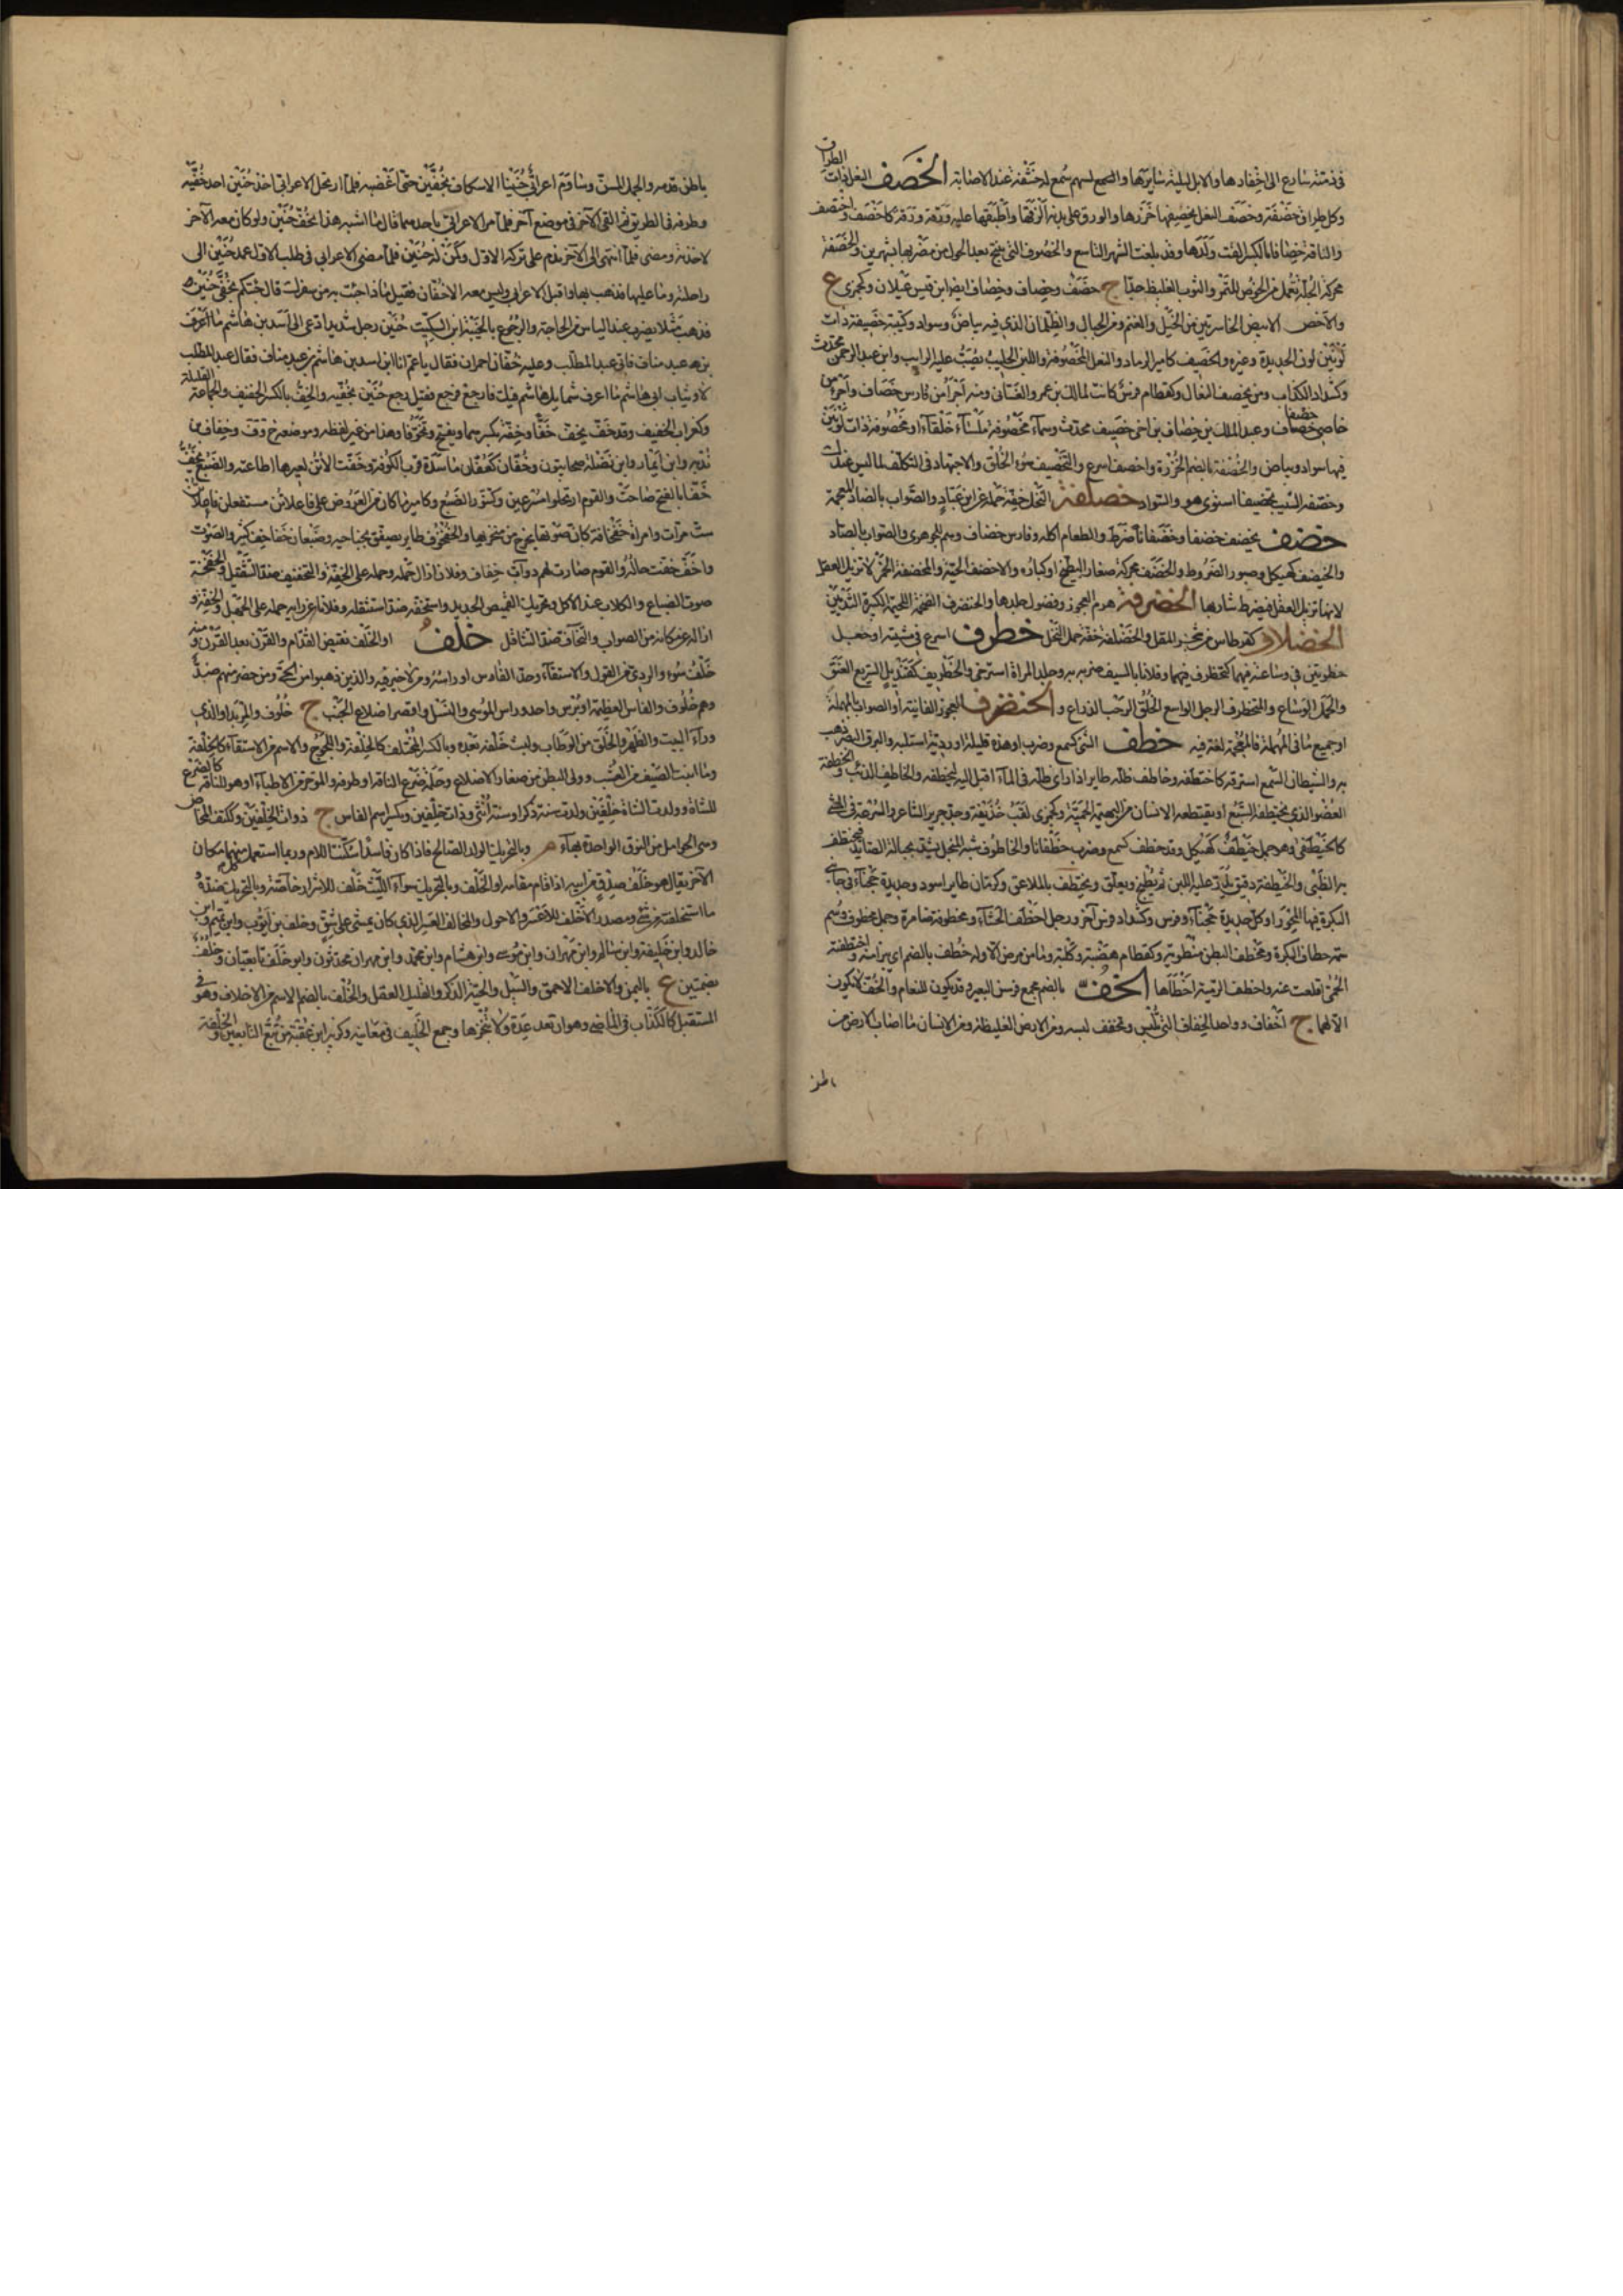 في ذمته سارع الى اخفارها والابل ليلته سايرها والسمع لسهم سمع له خشفة عند الاصابة الخصف النعل ذات الطراق
وكل طراق خصفة وخصف النعل يخصفها خرزها والورق على بدنه الزقها واطبقها عليه ورقة ورقة كاخصف واختصف
والناقة خصافا بالكسر القت ولدها وقد بلغت الشهر التاسع والخصوف التي تنتج بعد الحول من مضربها بشهرين والخصفة
محركة الجلة تعمل من الخوص للتمر والثوب الغليظ جدا ج خصف وخصاف وخصاف ايضا ابن قيس عيلان وكجمزى ع
والاخصف الابيض الخاصرتين من الخيل والغنم ومن الجبال والظلمان الذي فيه بياض وسواد وكتيبة خصيفة ذات
لونين لون الحديد وغيره والخصيف كامير الرماد والنعل المخصوفة واللبن الحليب يصب عليه الرايب وابن عبد الرحمن محدث
وكشداد الكذاب ومن يخصف النعال وكقطام فرس كانت لمالك بن عمرو الغساني ومنه اجرأ من فارس خصاف واجرأ من
خاصي خصاف وعبد الملك بن خصاف بن اخي خصيف محدث وسماء مخصوفة ملساء خلقاء او مخصوفة ذات لونين
فيها سواد وبياض والخصفة بالضم الخرزة واخصف اسرع والتخصيف سوء الخلق والاجتهاد في التكلف لما ليس عندك
وخصفه الشيب تخصيفا استوى هو والسواد خصلفة النخل خفة حمله عن ابن عباد والصواب بالضاد المعجمة
خضف يخضف خضفا وخضافا ضرط والطعام اكله وفارس خضاف وهم للجوهري والصواب بالصاد
والخيضف كهيكل وصبور الضروط والخضف محركة صغار البطيخ او كباره والاخضف الحية والمخضفة الخمر لانها تزيل العقل
لانها تزيل العقل فيضرط شاربها الخضرفة هرم العجوز وفضول جلدها والخنضرف الضخمة اللحيمة الكبيرة الثديين
الخضلاف كقرطاس شجر المقل والخضلفة خفة حمل النخل خطرف اسرع في مشيته او جعل
خطوتين في وساعته خطوة كتخطرف فيهما وفلانا بالسيف ضربه به وجلد المراة استرخى والخطريف كقنديل السريع العنق
والجمل الوساع والمتخطرف الرجل الواسع الخلق الرحب الذراع والخنظرف العجوز الفانية او الصواب بالمهملة
او جميع ما في المهملة فالمعجمة لغة فيه خطف الشئ كسمع وضرب او هذه قليلة او ردية استلبه والبرق البصر ذهب
به والشيطان السمع استرقه كاختطفه وخاطف ظله طاير اذا راى ظله في الماء اقبل اليه ليخطفه والخاطف الذئب والخطفة
العضو الذي يختطفه السبع او يقتطعه الانسان من البهيمة الحية وكجمزى لقب حذيفة وجد جرير الشاعر والسرعة في المشي
كالخيطفى وهو جمل خيطف كهيكل وقد خطف كسمع وضرب خطفانا والخاطوف شبه المنجل يشد بحبالة الصائد فيختطف
به الظبي والخطيفة دقيق يذر عليه اللبن ثم يطبخ ويعلق ويختطف بالملاعق وكرمان طاير اسود وحديدة حجناء في جانبي
البكرة فيها المحور او كل حديدة حجناء وفرس وكشداد فرس آخر ورجل اخطف الحشاء ومخطوفه ضامره وجمل مخطوف وسم
سمة خطاف البكرة ومخطف البطن منطويه وكقطام هضبة وكلبة وما من مرض الا وله خطف بالضم اي يبرأ منه واختطفته
الحمى اقلعت عنه واخطف الرمية اخطأها الخف بالضم مجمع فرسن البعير وقد يكون للنعام والخف لا يكون
الا لهما ج اخفاف وواحد الخفاف التي تلبس وتخفف لبسه ومن الارض الغليظة ومن الانسان ما اصاب الارض من
باطن
باطن قدمه والجمل المسن وساوم اعرابي حنينا الاسكاف بخفين حتى اغضبه فلما ارتحل الاعرابي اخذ حنين احد خفيه
وطرحه في الطريق ثم القى الآخر في موضع آخر فلما مر الاعرابي باحدهما قال ما اشبه هذا بخف حنين ولو كان معه الآخر
لاخذته ومضى فلما انتهى الى الآخر ندم على تركه الاول وكمن له حنين فلما مضى الاعرابي في طلب الاول عمد حنين الى
راحلته وما عليها فذهب بها واقبل الاعرابي وليس معه الا خفان فقيل ماذا جئت به من سفرك قال جئتكم بخفي حنين
فذهب مثلا يضرب عند الياس من الحاجة والرجوع بالخيبة ابن السكيت حنين رجل شديد ادعى الى اسد بن هاشم
بن عبد مناف فاتى عبد المطلب وعليه خفان احمران فقال يا عم انا ابن اسد بن هاشم بن عبد مناف فقال عبد المطلب
لا وثياب ابي هاشم ما اعرف شمايل هاشم فيك فارجع فرجع فقيل رجع حنين بخفيه والخف بالكسر الخفيف والجماعة القليلة
وكغراب الخفيف وقد خف يخف خفا وخفة بكسرهما ويفتح وتخوفا وهذا من غير لفظه وموضعه خ و ف وخفاف بن
ندبة وابن ايماء وابن نضلة صحابيون وخفان كعفان ماسدة قرب الكوفة وخفت الاتن لعيرها اطاعته والضبع تخف
خفا بالفتح صاحت والقوم ارتحلوا مسرعين وكتنور الضبع وكامير ما كان من العروض على فاعلاتن مستفعلن فاعلاتن
ست مرات وامراة خفخافة كان صوتها يخرج من منخريها والخفخوف طاير يصفق بجناحيه وضبعان خفاخف كثير الصوت
واخف خفت حاله والقوم صارت لهم دواب خفاف وفلانا ازال حلمه وحمله على الخفة والتخفيف ضد التثقيل والخفخفة
صوت الضباع والكلاب عند الاكل وتحريك القميص الجديد واستخفه ضد استثقله وفلانا عن رايه حمله على الجهل والخفة و
ازاله عن ما كان من الصواب والتخاف ضد التثاقل خلف او الخلف نقيض القدام والقرن بعد القرن ومنه
خلف سوء والردي من القول والاستقاء وحد الفاس او راسه ومن لا خير فيه والذين ذهبوا من الحي ومن حضر منهم ضد
وهم خلوف والفاس العظيمة او براس واحد وراس الموسى والنسل واقصر اضلاع الجنب ج خلوف والمربد او الذي
وراء البيت والظهر والخلق من الوطاب ولبث خلفه بعده وبالكسر المختلف كالخلفة واللجوج والاسم من الاستقاء كالخلفة
وما انبت الصيف من العشب وما ولي البطن من صغار الاضلاع وحلمة ضرع الناقة او طرفه والموخر من الاطباء او هو للناقة كالضرع
للشاة وولدت الشاة خلفين ولدت سنة ذكرا وسنة انثى وذات خلفين ويكسر اسم الفاس ج ذوات الخلفين وككتف المخاض
وهي الحوامل من النوق الواحدة بهاء وبالتحريك الولد الصالح فاذا كان فاسدا اسكنت اللام وربما استعمل كل منهما مكان
الآخر يقال هو خلف صدق من ابيه اذا قام مقامه او الخلف وبالتحريك سواء الليث خلف للاشرار خاصة وبالتحريك ضده و
ما استخلفته من شئ ومصدر الاخلف للاعسر والاحول والمخالف العسر الذي كان يمشي على شق وخلف بن ايوب وابن تميم وابن
خالد وابن خليفة وابن سالم وابن مهران وابن موسى وابن هشام وابن محمد وابن مهران محدثون وابو خلف تابعيان وخلف
بضمتين ع باليمن والاخلف الاحمق والسيل والحية الذكر والقليل العقل والخلف بالضم الاسم من الاخلاف وهو في
المستقبل كالكذب في الماضي وهو ان تعد عدة ولا تنجزها وجمع الخليف في معانيه وكزبير ابن عقبة من تبع التابعين والخلفة